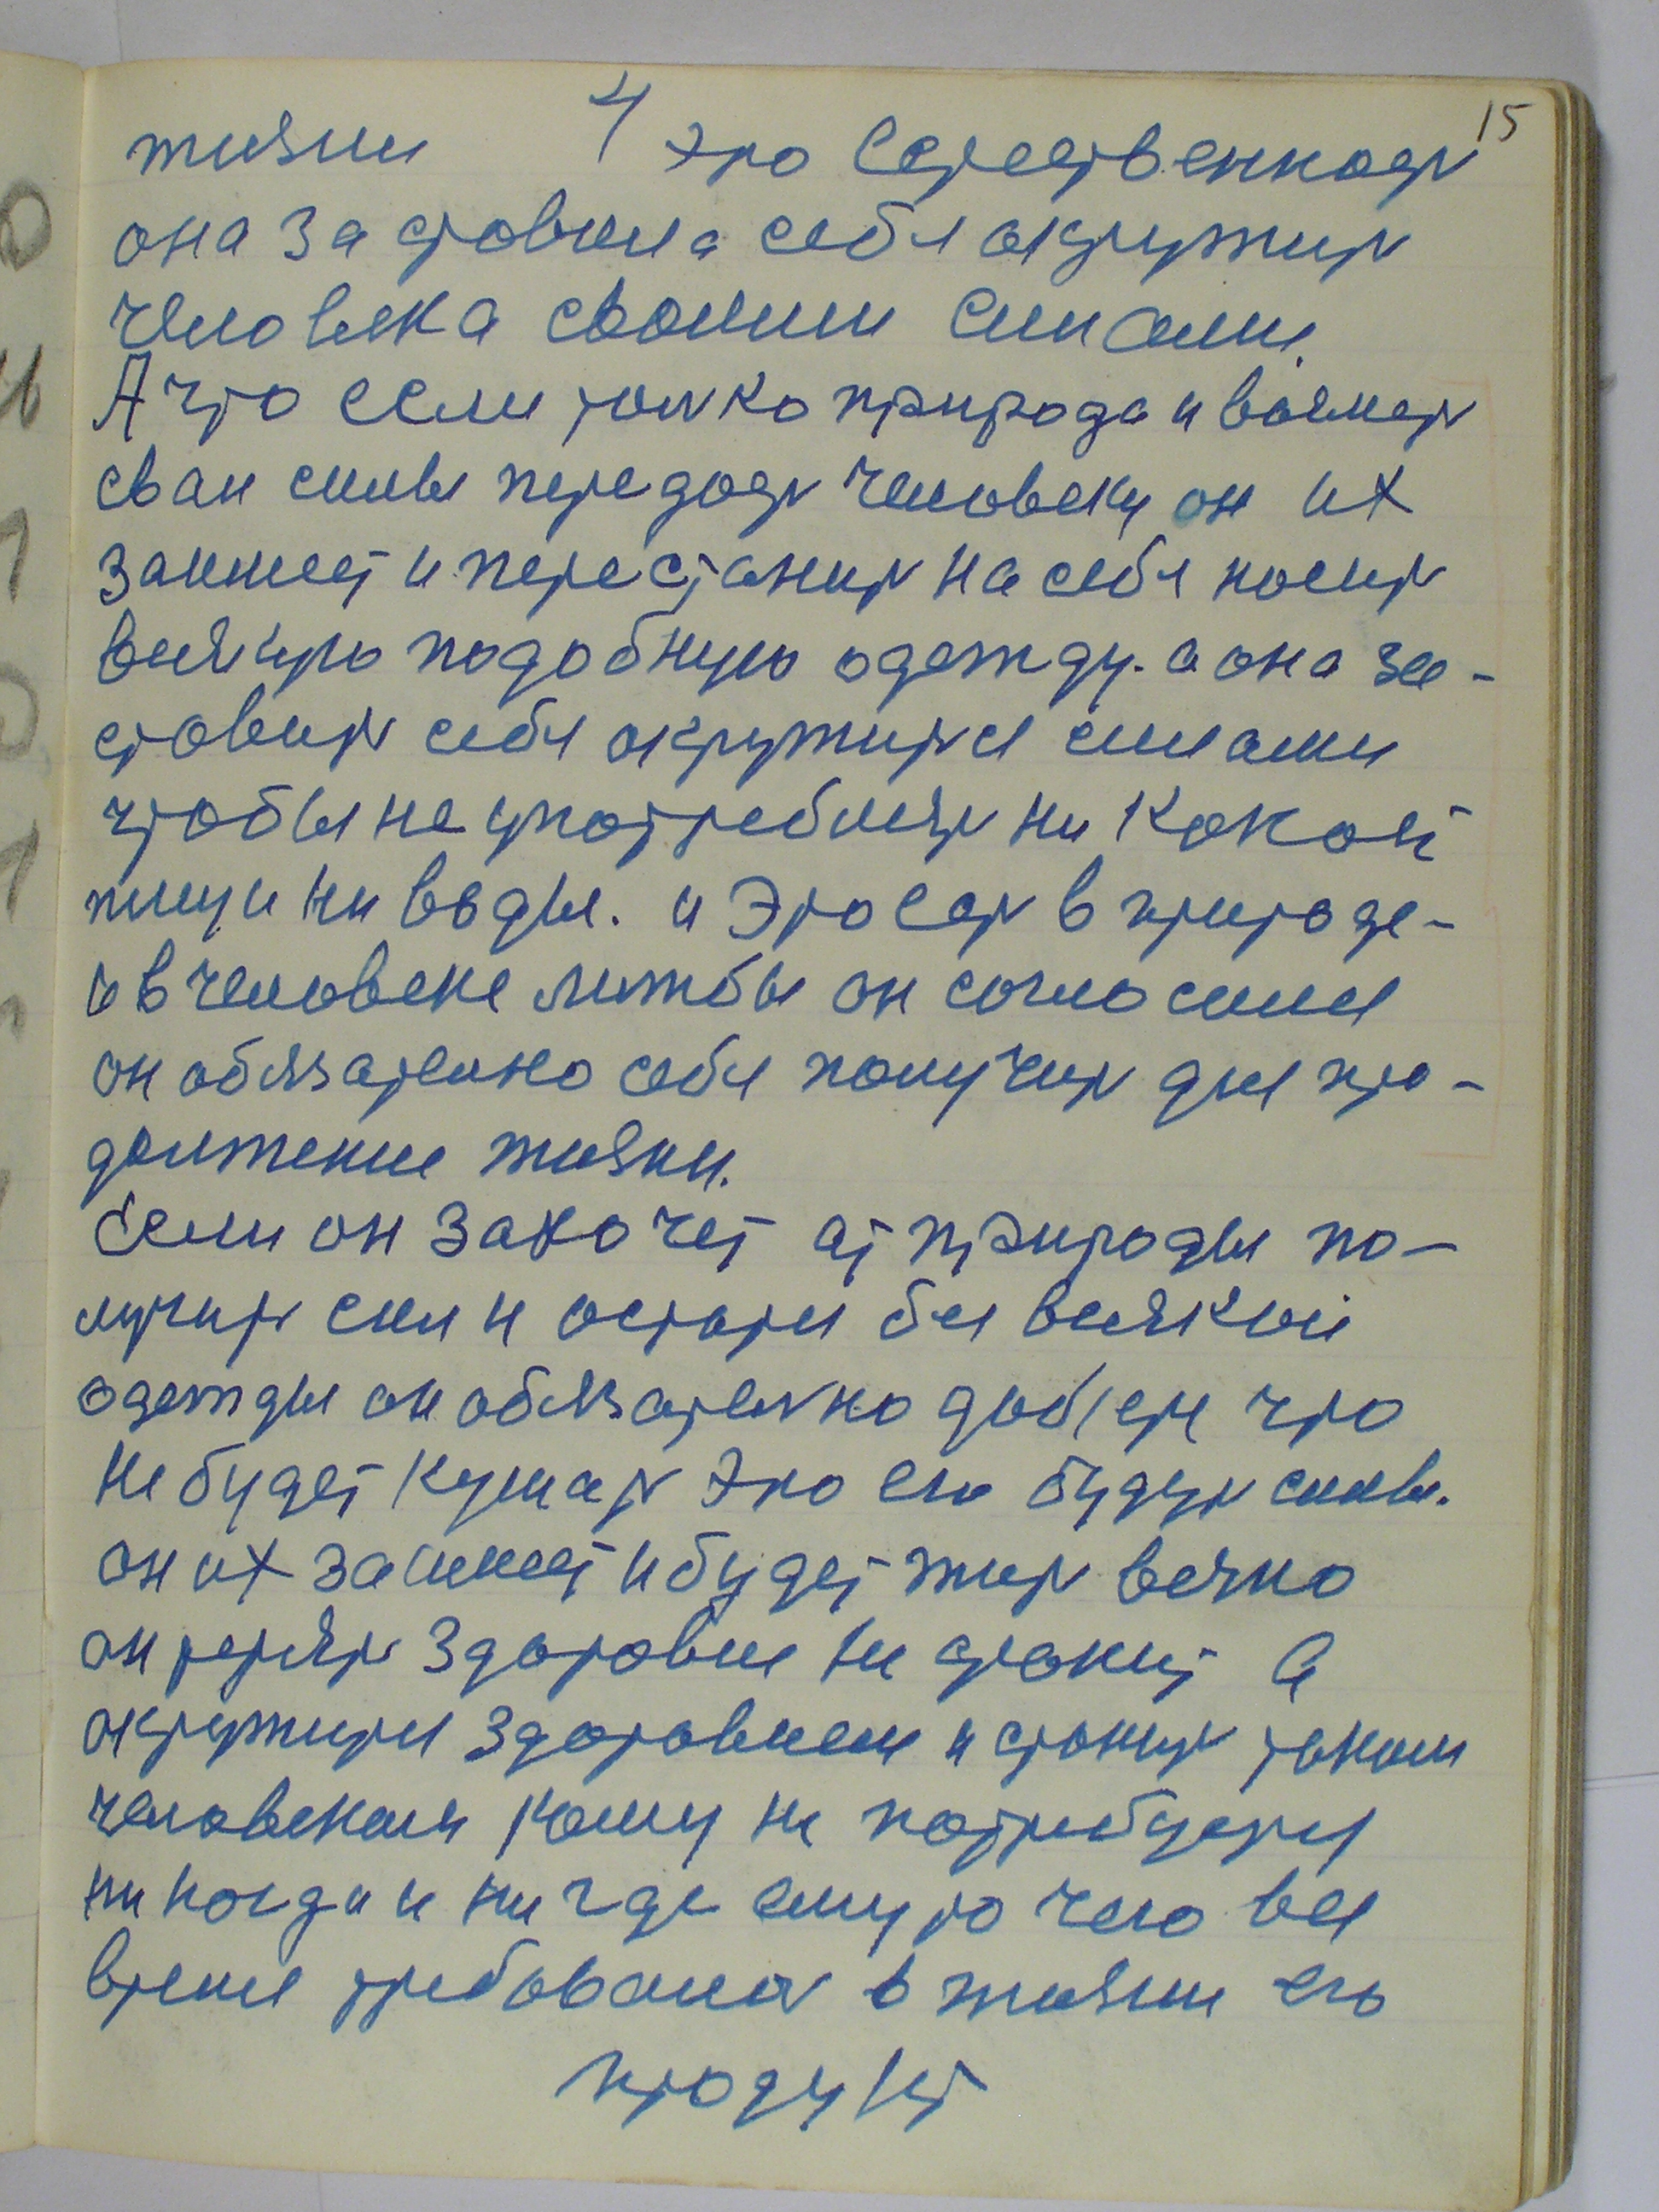 4 15
жизни это естественность
она заставила себя окружить
человека своими силами.
А что если только природа и возмет
сваи силы передать человеку он их
займет и перестанит на себя носить
всякую подобную одежду. а она за-
ставит себя окружится силами
чтобы не употреблять ни какой
пищи ни воды. и это есть в природе-
и в человеке лижбы он согласился
он обязателно себя получит для про-
должение жизни.
Если он захочет от природы по-
лучить сил и остатся бы всякий
одежды он обязательно добется что
не будет кушать это его будут силы.
он их займет и будет жить вечно
он терять здоровие не станит а
окружится здоровием и станит таким
человеком кому не потребуется
ни когда и ни где ему то чего вся
время требовалось в жизни его
продукт